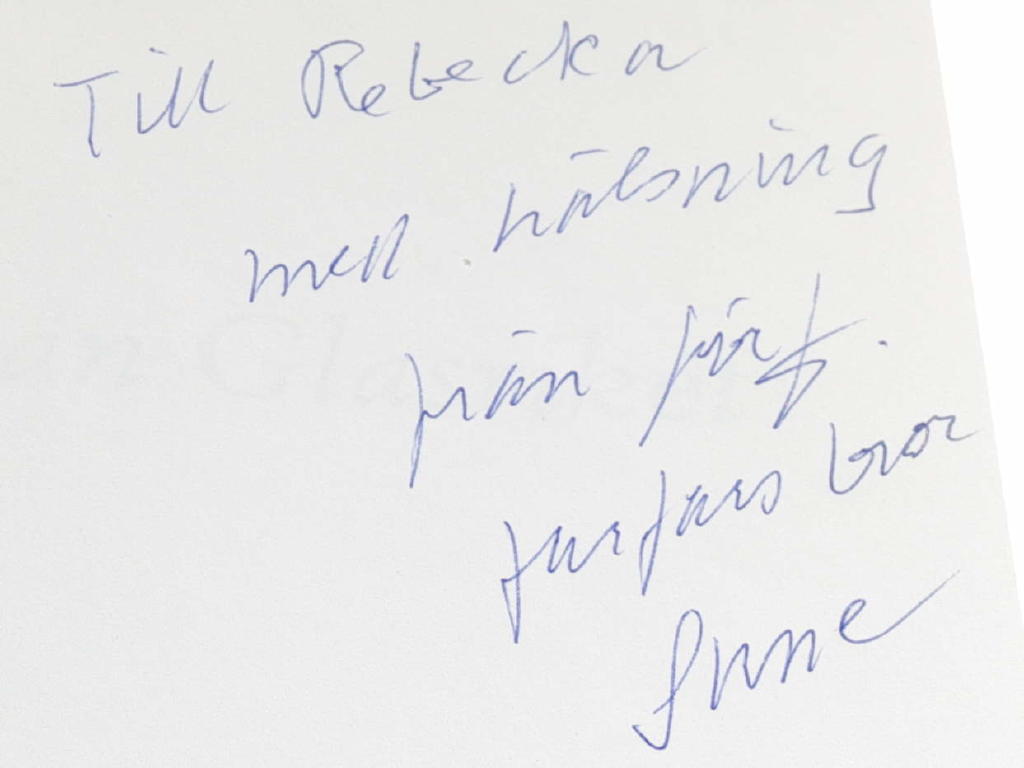 Till Rebecka
med hälsning
från förf.
farfars bror
Sune